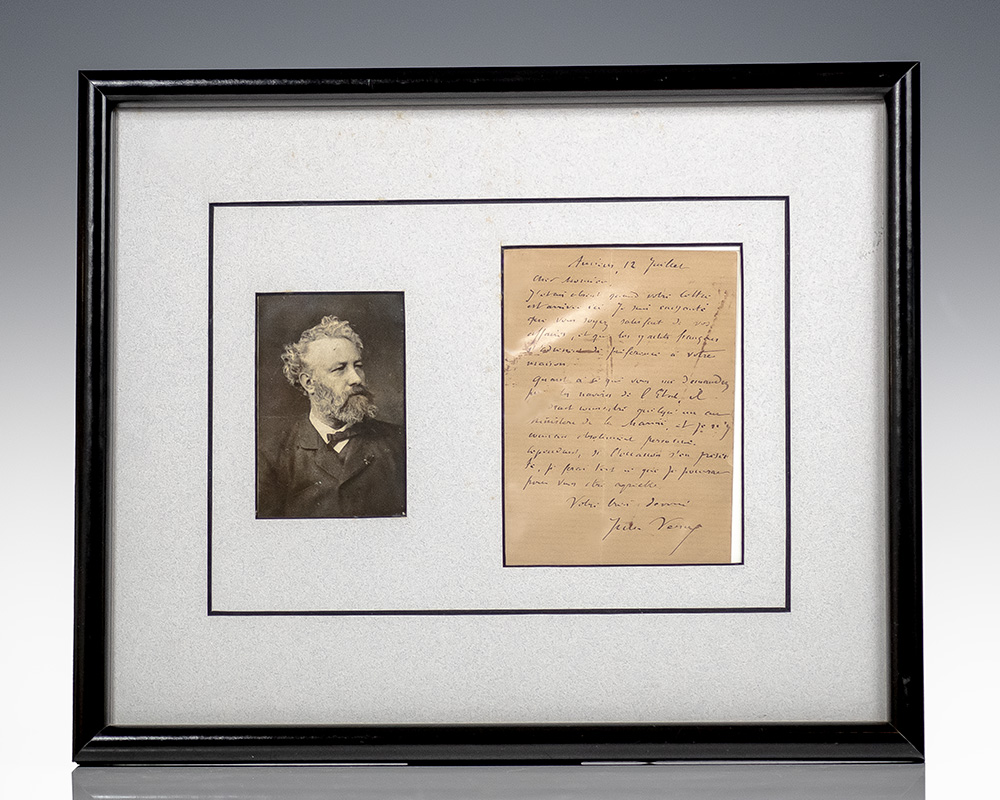 Amiens, 12 Juillet
Cher Monsieur,
J'étais absent quand votre lettre
est arrivée ici. Je suis enchanté
que vous soyez satisfait de vos
affaires, et que les yachts français
préférence à votre
maison.
Quant à ce que vous me demandez
pour les navires de l'Etat, il
faut connaître quelqu'un au
ministère de la Marine, et je n'y
connais absolument personne.
Cependant, si l'occasion s'en présen
te, je ferai tout ce que je pourrai
pour vous être agréable.
Votre bien dévoué
Jules Verne